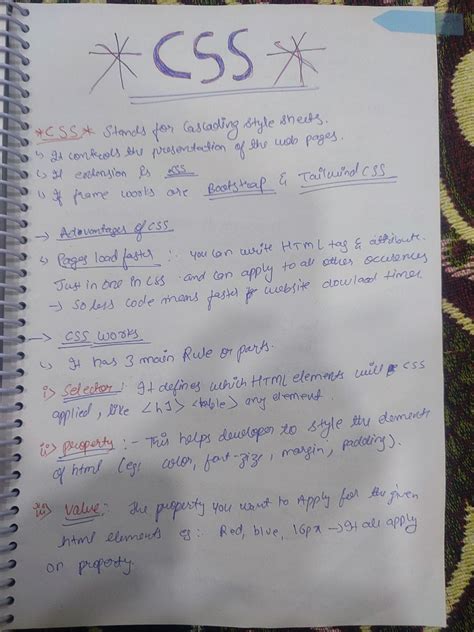 * CSS *
*CSS* Stands for Cascading style sheets.
↳ It controls the presentation of the web pages.
↳ It extension is .css
↳ If frame works are Bootstrap & Tailwind CSS
→ Advantages of CSS
↳ Pages load faster :- you can write HTML tag & attribute.
Just in one in css and can apply to all other occurences
→ So less code means faster website download time.
→ CSS works
↳ It has 3 main Rule or parts.
i) Selector : It defines which HTML elements will be CSS
applied, like <h1> <table> any element.
ii) property :- This helps developer to style the elements
of html (eg: color, font-size, margin, padding).
iii) Value : The property you want to Apply for the given
html elements eg: Red, blue, 16px → It all apply
on property.